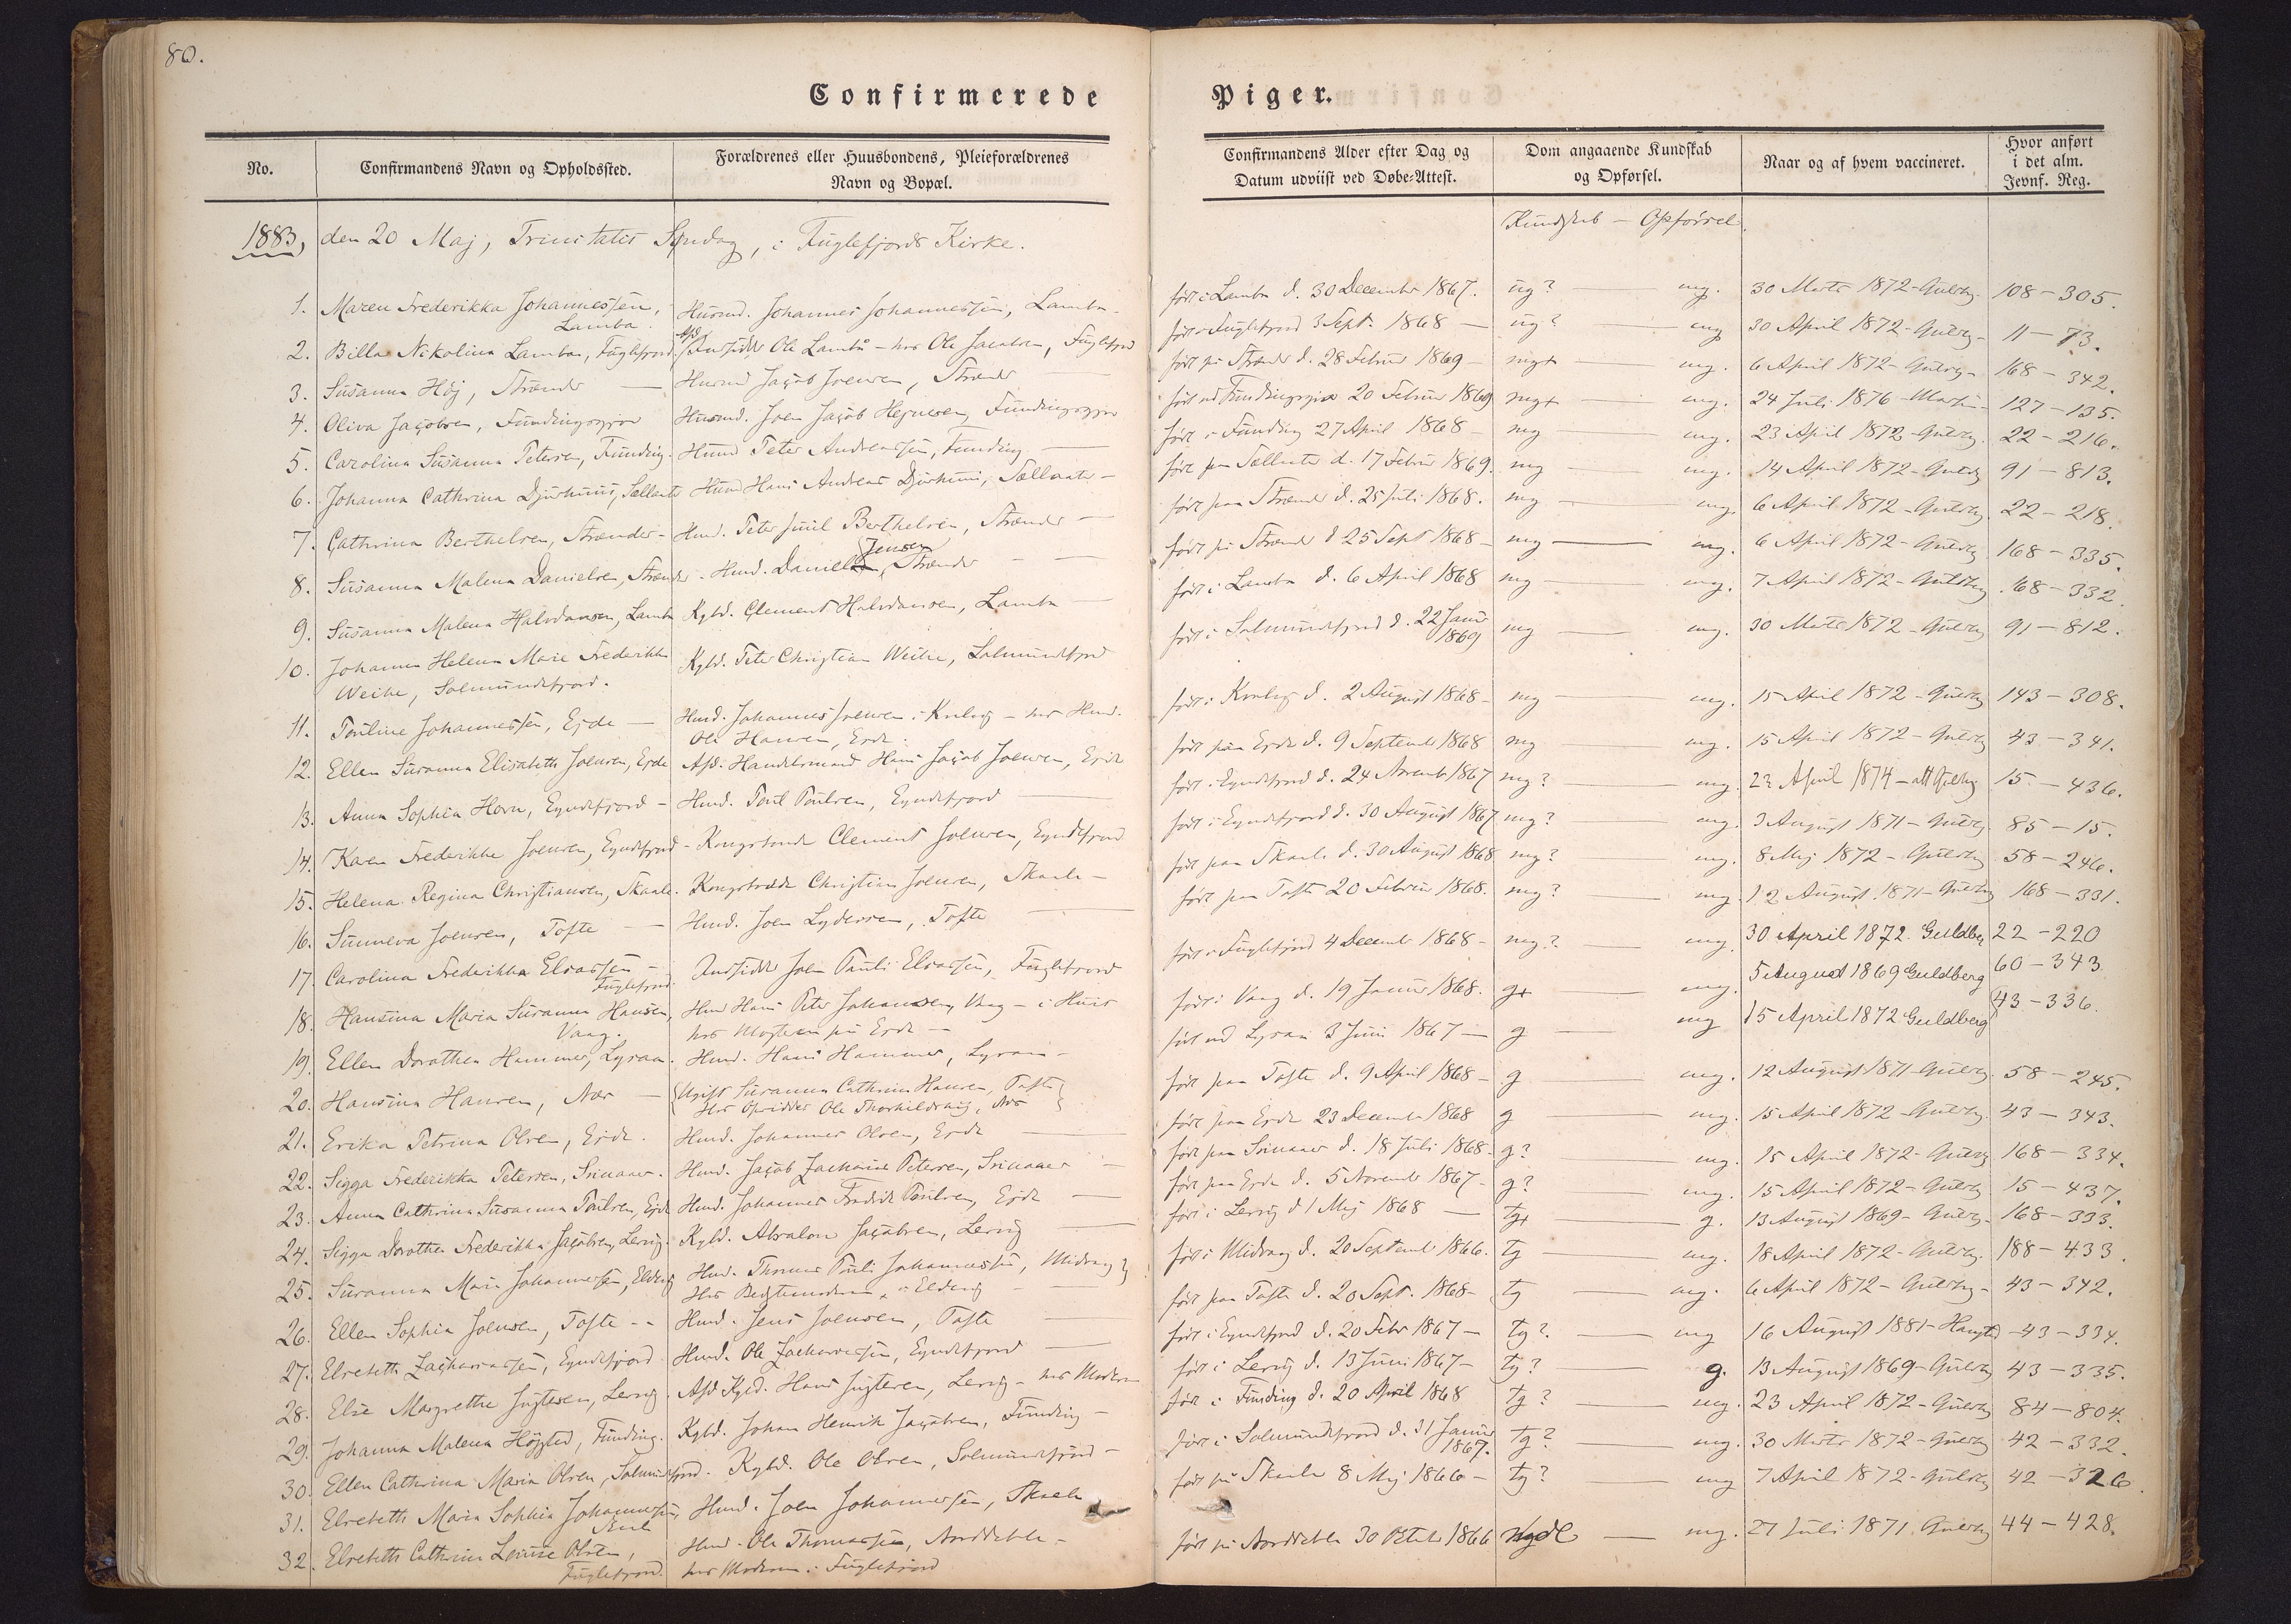 80.
Confirmerede Piger.
No.
Confirmandens Navn og Opholdssted.
Forældrenes eller Huusbondens, Pleieforældrenes
Navn og Bopæl.
Confirmandens Alder efter Dag og
Datum udviist ved Døbe-Attest.
Dom angaaende Kundskab
og Opførsel.
Naar og af hvem vaccineret.
Hvor anført
i det alm.
Jevnf. Reg.
Kundskab — Opførsel.
1883, den 20 Maj, Trinitatis Søndag, i Fuglefjords Kirke.
1. Maren Frederikka Johannessen, Husmd. Johannes Johannessen, Lamba - født i Lamba d. 30 December 1867. ug? — mg. 30 Marts 1872 - Guldbg. 108 - 305.
Lamba.
2. Billa Nikolina Lamba, Fuglefjord Afd. Indsidder Ole Lamba - hos Ole Jacobsen, Fuglefjord født i Fuglefjord 3 Sept. 1868 — ug? mg 30 April 1872 - Guldbg - 11 - 73.
3. Susanna Høj, Strænder — Husmd Jacob Joensen, Strænder født på Strænder d. 28 Februar 1869 - mg+ — mg. 6 April 1872 - Guldbg - 168 - 342.
4. Oliva Jacobsen, Fundingsgjov Husmd. Joen Jacob Hejnesen, Fundingsgjov født ved Fundingsgjov 20 Februar 1869 mg+ — mg. 24 Juli 1876 - Martin - 127 - 135.
5. Carolina Susanna Petersen, Funding. Husmd Peter Andreassen, Funding — født i Funding 27 April 1868 - mg — mg. 23 April 1872 - Guldbg. 22 - 216.
6. Johanna Cathrina Djurhuus, Sællatr Husmd Hans Andreas Djurhuus, Sællatr - født paa Sællatr d. 17 Februar 1869. mg — mg. 14 April 1872 - Guldbg 91 - 813.
7. Cathrina Berthelsen, Strænder - Husmd. Peter Juul Berthelsen, Strænder — født paa Strænder d. 25 Juli 1868. mg — mg. 6 April 1872 - Guldbg. 22 - 218.
8. Susanna Malena Danielsen, Strænder - Husmd. Daniel Jensen, Strænder - født på Strænder d 25 Sept 1868 - mg — mg. 6 April 1872 - Guldbg 168 - 335.
9. Susanna Malena Halvdansen, Lamba Kgbd. Clement Halvdansen, Lamba — født i Lamba d. 6 April 1868 mg — mg. 7 April 1872 - Guldbg 168 - 332.
10. Johanna Helena Marie Frederikke Kgbd. Peter Christian Weihe, Salmundefjord født i Salmundefjord d. 22 Januar mg — mg. 30 Marts 1872 - Guldbg 91 - 812.
Weihe, Salmundefjord. 1869
11. Pouline Johannessen, Ejde — Husmd. Johannes Joensen i - hos Husmd. født i d. 2 August 1868 - mg — mg. 15 April 1872 - Guldbg 143 - 308.
Ole Hansen, Ejde.
12. Ellen Susanna Elisabeth Joensen, Ejde Afd. Handelsmand Hans Jacob Joensen, Ejde født paa Ejde d. 9 September 1868 mg — mg. 15 April 1872 - Guldbg 43 - 341.
13. Anna Sophia Hovn, Eyndefjord - Husmd. Poul Poulsen, Eyndefjord — født i Eyndefjord d. 24 Novemb 1867 mg? — mg. 22 April 1874 - 15 - 436.
14. Karen Frederikke Joensen, Eyndefjord - Kongsbonde Clement Joensen, Eyndefjord født i Eyndefjord d. 30 August 1867 mg? — mg. 3 August 1871 - Guldbg. 85 - 15.
15. Helena Regina Christiansen, Skaale. Kongsbonde Christian Joensen, Skaale - født paa Skaale d. 30 August 1868 mg? — mg. 8 Maj 1872 - Guldbg 58 - 246.
16. Sunneva Joensen, Tofte — Husmd. Joen Lydersen, Tofte — født paa Tofte 20 Februar 1868. mg? — mg. 12 August 1871 - Guldbg 168 - 331.
17. Carolina Frederikka Eliassen - Indsidder Joen Pauli Eliassen, Fuglefjord født i Fuglefjord 4 December 1868 - mg? — mg. 30 April 1872. Guldberg 22 - 220
Fuglefjord.
18. Hansina Maria Susanna Hansen, Husmd Hans Peter Johansen, Vaag - i Huus født i Vaag d. 19 Januar 1868. g+ mg. 5 August 1869 Guldberg 60 - 343
Vaag. hos på Ejde —
19. Ellen Dorothea Hammer, Lyraa. Husmd. Hans Hammer, Lyraa - født ved Lyraa 3 Juni 1867 — g — mg 15 April 1872 Guldberg 43 - 336.
20. Hansina Hansen, Nær — Ugift Susanna Cathrina Hansen, Tofte født paa Tofte d. 9 April 1868 - g mg. 12 August 1871 - Guldbg. 58 - 245.
Hos Opsidder Ole
21. Erika Petrina Olsen, Ejde. Husmd. Johannes Olsen, Ejde — født paa Ejde 23 December 1868 g — mg. 15 April 1872 - Guldbg. 43 - 343.
22. Sigga Frederikka Petersen, Svinaaer. Husmd. Jacob Zacharias Petersen, Svinaaer født paa Svinaaer d. 18 Juli 1868. g? — mg. 15 April 1872 - Guldbg 168 - 334.
23. Anna Cathrina Susanna Poulsen, Ejde Husmd. Johannes Fredrik Poulsen, Ejde — født paa Ejde d. 5 November 1867 - g? mg. 15 April 1872 - Guldbg 15 - 437.
24. Sigga Dorothea Frederikka Jacobsen, Lervig. Kgbd. Absalon Jacobsen, Lervig — født i Lervig d 1 Maj 1868 — tg+ — g. 13 August 1869 - Guldbg - 168 - 333.
25. Susanna Maria Johannessen, Eldevig Husmd. Thomas Pauli Johannessen, Midvaag født i Midvaag d. 20 September 1866. tg — mg. 18 April 1872 - Guldbg. 188 - 433.
Hos Bedstemoderen i Eldevig
26. Ellen Sophia Joensen, Tofte -- Husmd. Jens Joensen, Tofte — født paa Tofte d. 20 Sept. 1868 - tg — mg. 6 April 1872 - Guldbg - 43 - 342.
27. Elsebeth Zachariassen, Eyndefjord Husmd. Ole Zachariassen, Eyndefjord født i Eyndefjord d. 20 Febr 1867 - tg? — mg 16 August 1881 - 43 - 334.
28. Else Margrethe Lervig. Afd Kgbd. Hans Lervig - hos Moderen født i Lervig d. 13 Juni 1867 - tg? — g. 13 August 1869 - Guldbg 43 - 335.
29. Johanna Malena Højgted, Funding. Kgbd. Johan Henrik Jacobsen, Funding - født i Funding d. 20 April 1868 tg? — mg. 23 April 1872 - Guldbg 84 - 804.
30. Ellen Cathrina Maria Olsen, Salmundefjord. Kgbd. Ole Olsen, Salmundefjord - født i Salmundefjord d. 31 Januar tg? — mg. 30 Marts 1872 - Guldbg 42 - 332.
1867.
31. Elsebeth Maria Sophia Johannessen, Husmd. Joen Johannessen, Skaale født på Skaale 8 Maj 1866 - tg? — mg 7 April 1872 - Guldbg 42 - 326.
32. Elsebeth Cathrina Louise Olsen, Husmd. Ole Thomassen, Norddeble - født på Norddeble 30 Octobr 1866 — mg. 27 Juli 1871. Guldbg 44 - 428.
Fuglefjord. hos Moderen i Fuglefjord